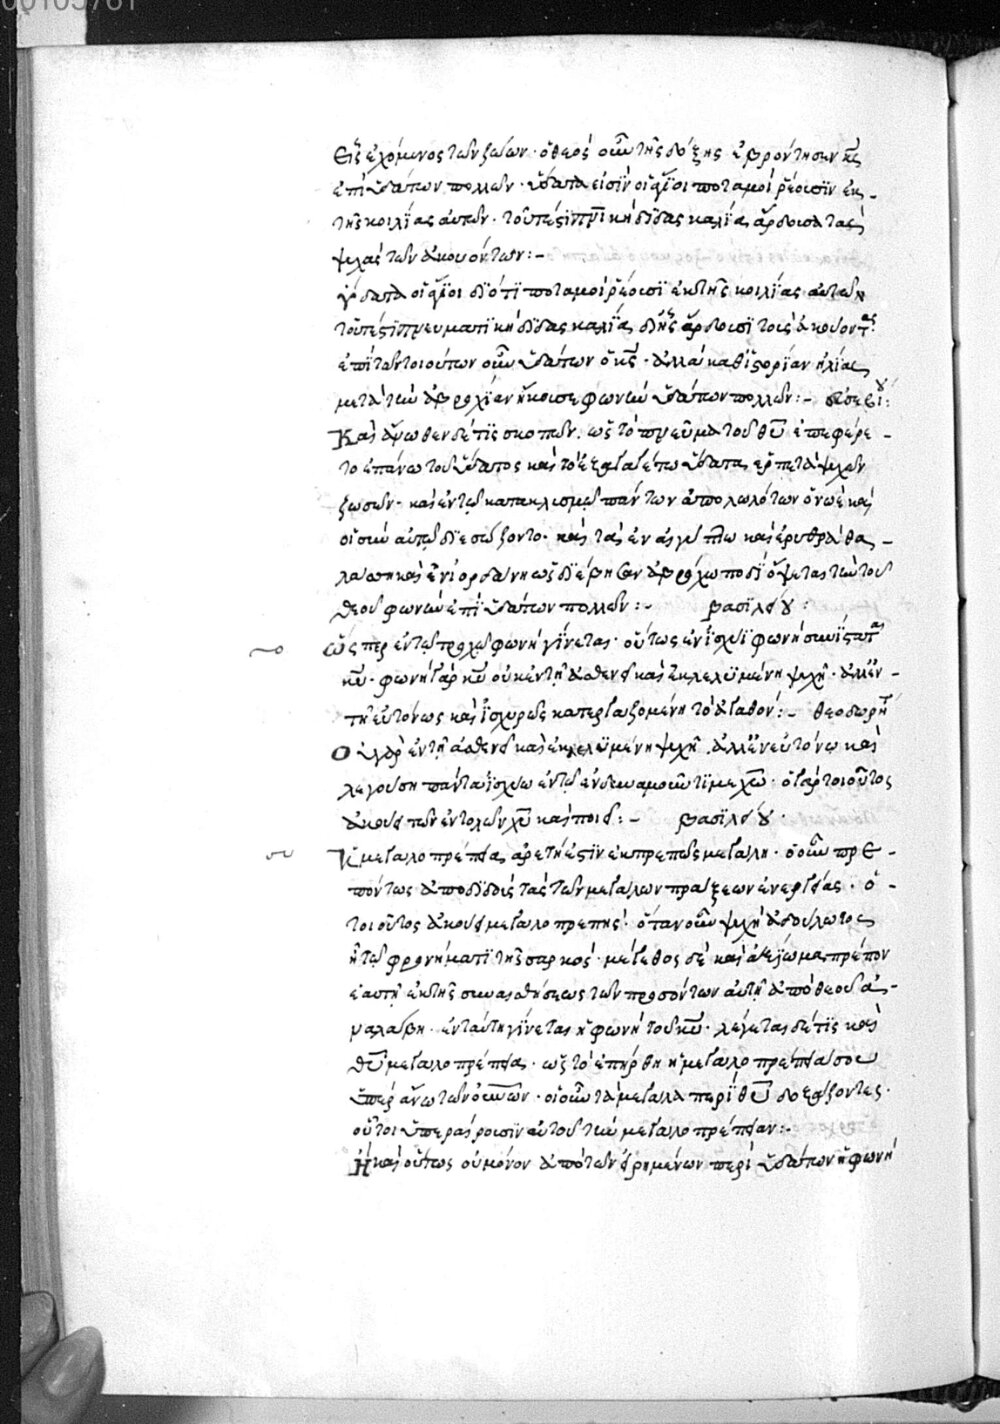 00105761
ἑξῆς ἐχόμενος τῶν ζώων· ὁ θεὸς οὖν τῆς δόξης ἐβρόντησεν κς
ἐπὶ ὑδάτων πολλῶν· ὕδατα εἰσὶν οἱ ἅγιοι ποταμοὶ ῥέουσιν ἐκ
τῆς κοιλίας αὐτῶν· τουτέστι πνικὴ διδασκαλία ἄρδουσα τὰς
ψυχὰς τῶν ἀκουόντων:-
ὕδατα οἱ ἅγιοι διότι ποταμοὶ ῥέουσι ἐκ τῆς κοιλίας αὐτῶν
τουτέστι πνευματικὴ διδασκαλία δι' ἧς ἄρδουσι τοὺς ἀκούοντας
ἐπὶ τῶν τοιούτων οὖν ὑδάτων ὁ κς· ἀλλὰ καθ' ἱστορίαν ἠλίας
μετὰ τὴν ἀβροχίαν ἤκουσε φωνὴν ὑδάτων πολλῶν:- εὐσεβίου:
Καὶ ἄνωθεν δέ τις σκοπῶν. ὡς τὸ πνεῦμα τοῦ θυ ἐπεφέρε
το ἐπάνω τοῦ ὕδατος καὶ τὸ ἐξαγαγέτω ὕδατα ἑρπετὰ ψυχῶν
ζωσῶν· καὶ ἐν τῷ κατακλυσμῷ πάντων ἀπολωλότων ὁ νῶε καὶ
οἱ σὺν αὐτῷ διεσώζοντο· καὶ τὰς ἐν αἰγύπτω καὶ ἐρυθρᾶ θα
λάσση καὶ ἐν ἰορδάνη ὡς διέβησαν ἀβρόχω ποδὶ ὄψεται τὴν τοῦ
θεοῦ φωνὴν ἐπὶ ὑδάτων πολλῶν:- βασιλείου:
Ὥσπερ ἐν τῷ τροχῷ φωνὴ γίνεται· οὕτως ἐν ἰσχύϊ φωνὴ συνίσταται
κυ· φωνὴ γὰρ κυ οὐκ ἐν τῇ ἀσθενεῖ καὶ ἐκλελυμένη ψυχῇ· ἀλλ' ἐν
τῇ εὐτόνως καὶ ἰσχυρῶς κατεργαζομένη τὸ ἀγαθόν:- θεοδωρήτ
Οὐ γὰρ ἐν τῇ ἀσθενεῖ καὶ ἐκλελυμένη ψυχῇ ἀλλ' ἐν εὐτόνω καὶ
λεγούση πάντα ἰσχύω ἐν τῷ ἐνδυναμοῦντί με χω· ὁ γὰρ τοιοῦτος
ἀκούει τῶν ἐντολῶν χυ καὶ ποιεῖ:- βασιλείου·
Ἡ μεγαλοπρέπεια ἀρετή ἐστιν ἐκπρεπῶς μεγάλη· ὁ οὖν πρε
πόντως ἀποδιδοὺς τὰς τῶν μεγάλων πράξεων ἐνεργείας· ὁ
τοιοῦτος ἀκούει μεγαλοπρεπής· ὅταν οὖν ψυχὴ ἀδούλωτος
ἢ τῷ φρονήματι τῆς σαρκός· μέγεθος δὲ καὶ ἀξίωμα πρέπον
ἑαυτῇ ἐκ τῆς συναισθήσεως τῶν προσόντων αὐτῇ ἀπὸ θεοῦ ἀ
ναλάβη· ἐν ταύτη γίνεται ἡ φωνὴ τοῦ κυ· λέγεται δέ τις καὶ
θυ μεγαλοπρέπεια· ὡς τὸ ἐπήρθη ἡ μεγαλοπρέπειά σου
ὑπεράνω τῶν ουνων· οἱ οὖν τὰ μεγάλα περὶ θυ δοξάζοντες·
οὗτοι ὑπεραίρουσιν αὐτοῦ τὴν μεγαλοπρέπειαν:-
Ἢ καὶ οὕτως οὐ μόνον ἀπὸ τῶν εἰρημένων περὶ ὑδάτων ἡ φωνὴ